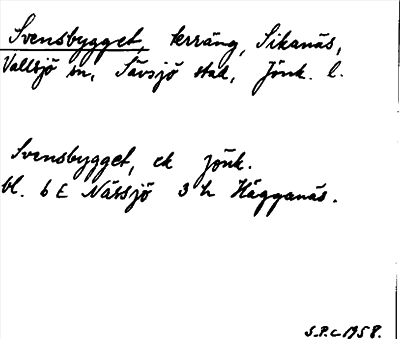 Svensbygget, terräng, Sikanäs,
Vallsjö sn, Sävsjö stad, Jönk. l.
Svensbygget, ek Jönk.
bl. 6 E Nässjö 3 h Hägganäs.
S.P.C. 1958.